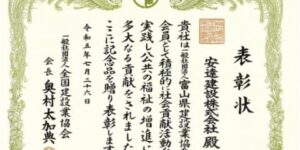 表彰状
安達建設株式会社 殿
貴社は一般社団法人富山県建設業協会
会員として積極的に社会貢献活動を
実践し公共の福祉の増進に
多大なる貢献をされました
ここに記念品を贈り表彰します
令和五年七月二十六日
一般社団法人全国建設業協会
会長 奥村太加典